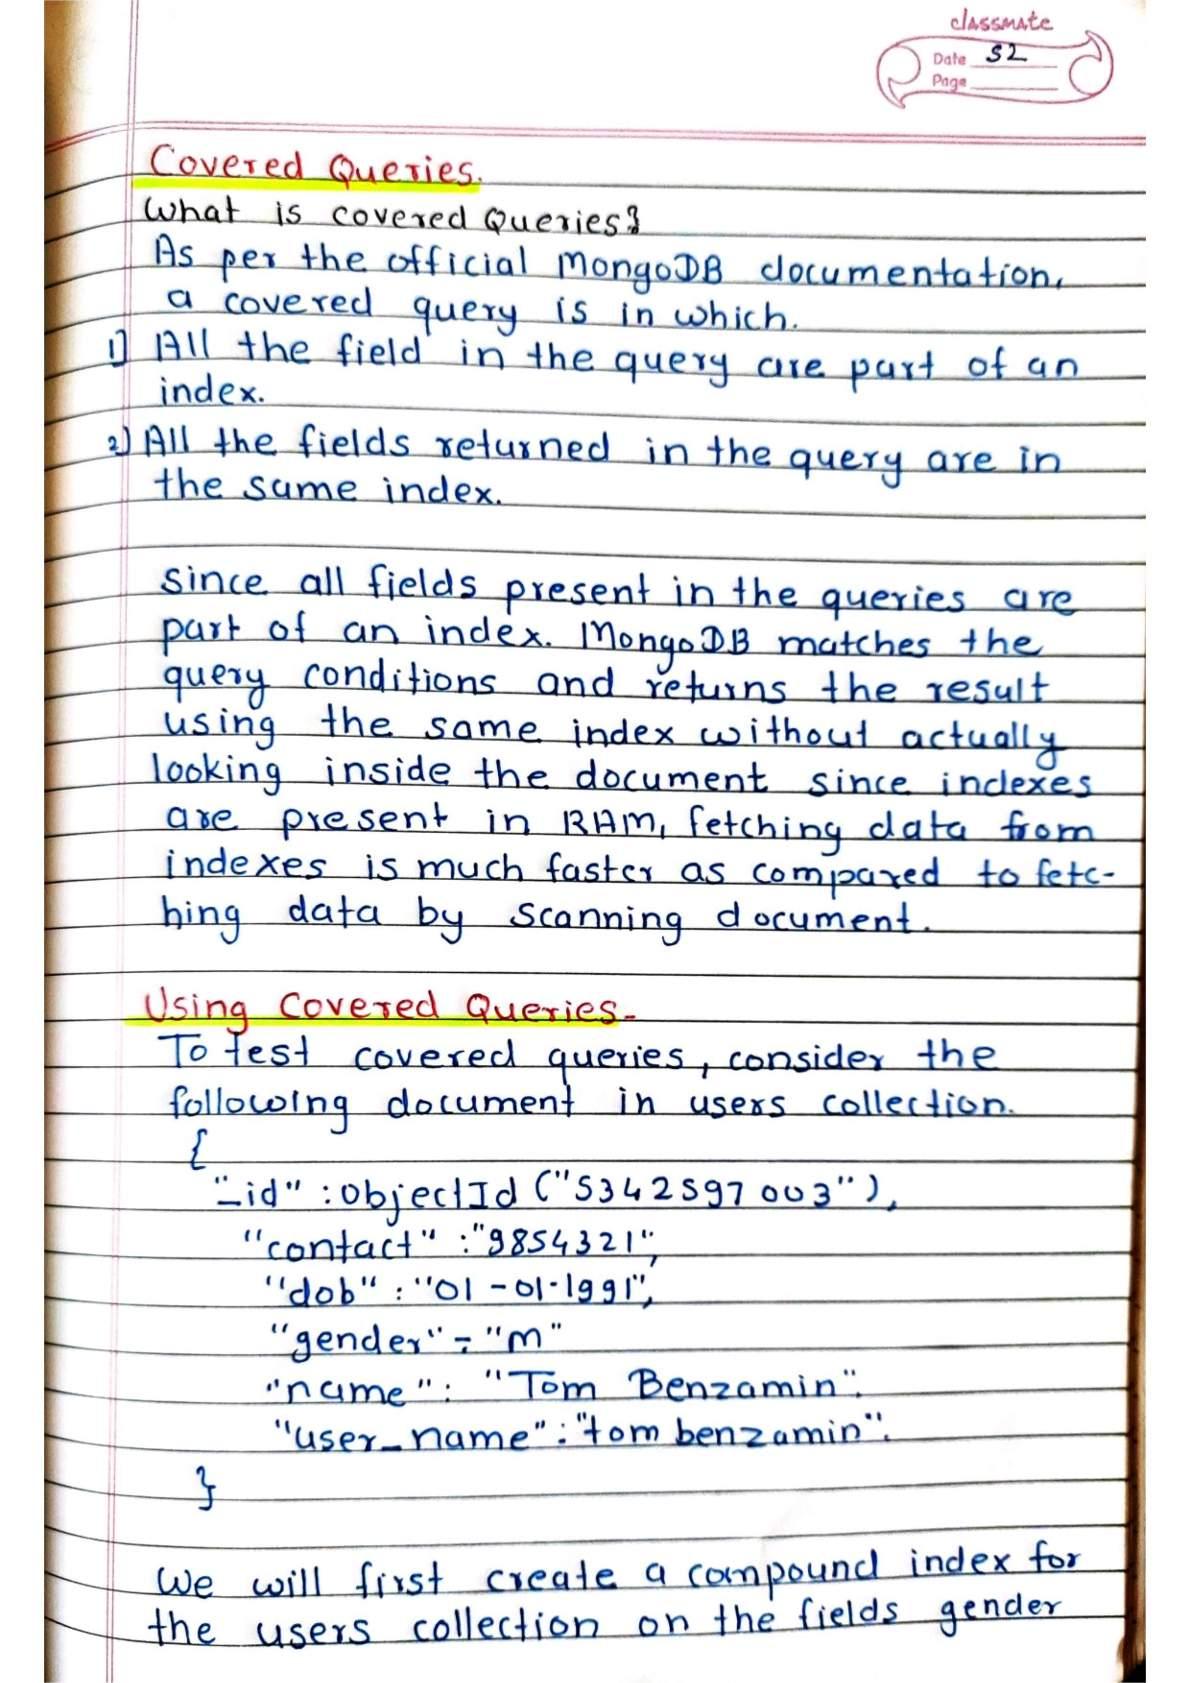 classmate
Date 52
Page
Covered Queries.
What is covered Queries?
As per the official MongoDB documentation,
a covered query is in which.
1) All the field in the query are part of an
index.
2) All the fields returned in the query are in
the same index.
Since all fields present in the queries are
part of an index. MongoDB matches the
query conditions and returns the result
using the same index without actually
looking inside the document since indexes
are present in RAM, fetching data from
indexes is much faster as compared to fetc-
hing data by scanning document.
Using Covered Queries-
To test covered queries, consider the
following document in users collection.
{
"_id" : objectId ("5342597003"),
"contact" : "9854321",
"dob" : "01-01-1991",
"gender" = "m"
"name" : "Tom Benzamin".
"user_name" : "tom benzamin".
}
We will first create a compound index for
the users collection on the fields gender